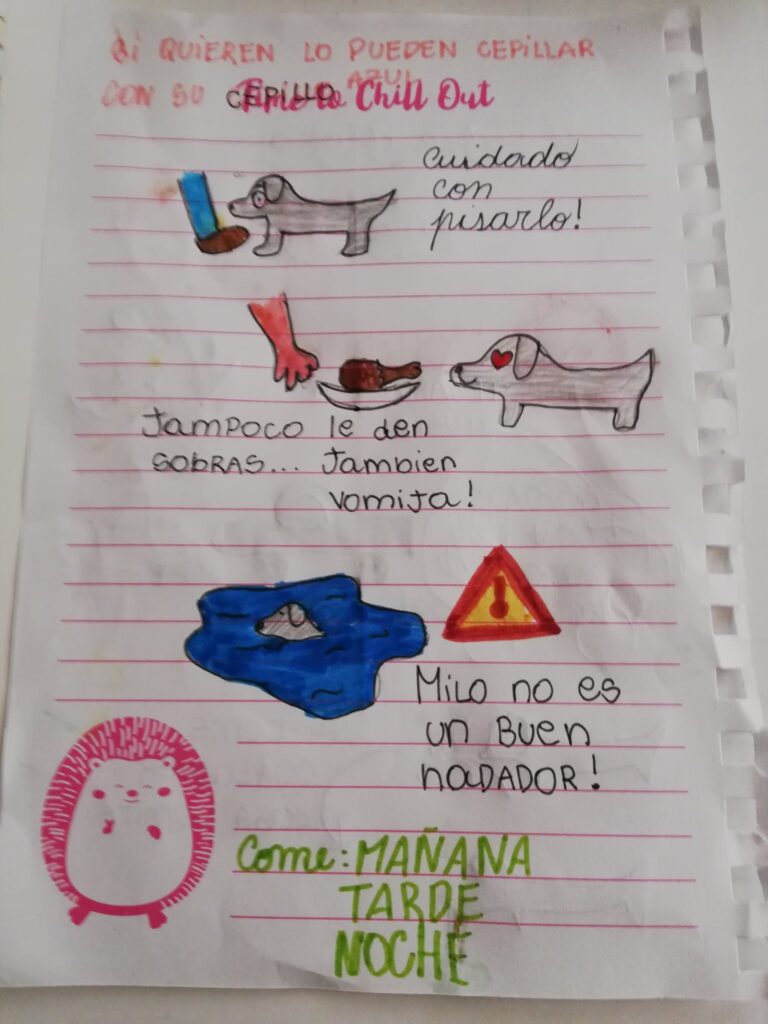 SI QUIEREN LO PUEDEN CEPILLAR
CON SU CEPILLO AZUL
Time to Chill Out
cuidado
con
pisarlo!
TAMPOCO le den
SOBRAS... Tambien
vomita!
MILO no es
un BUEN
nADADOR!
Come: MAÑANA
TARDE
NOCHE